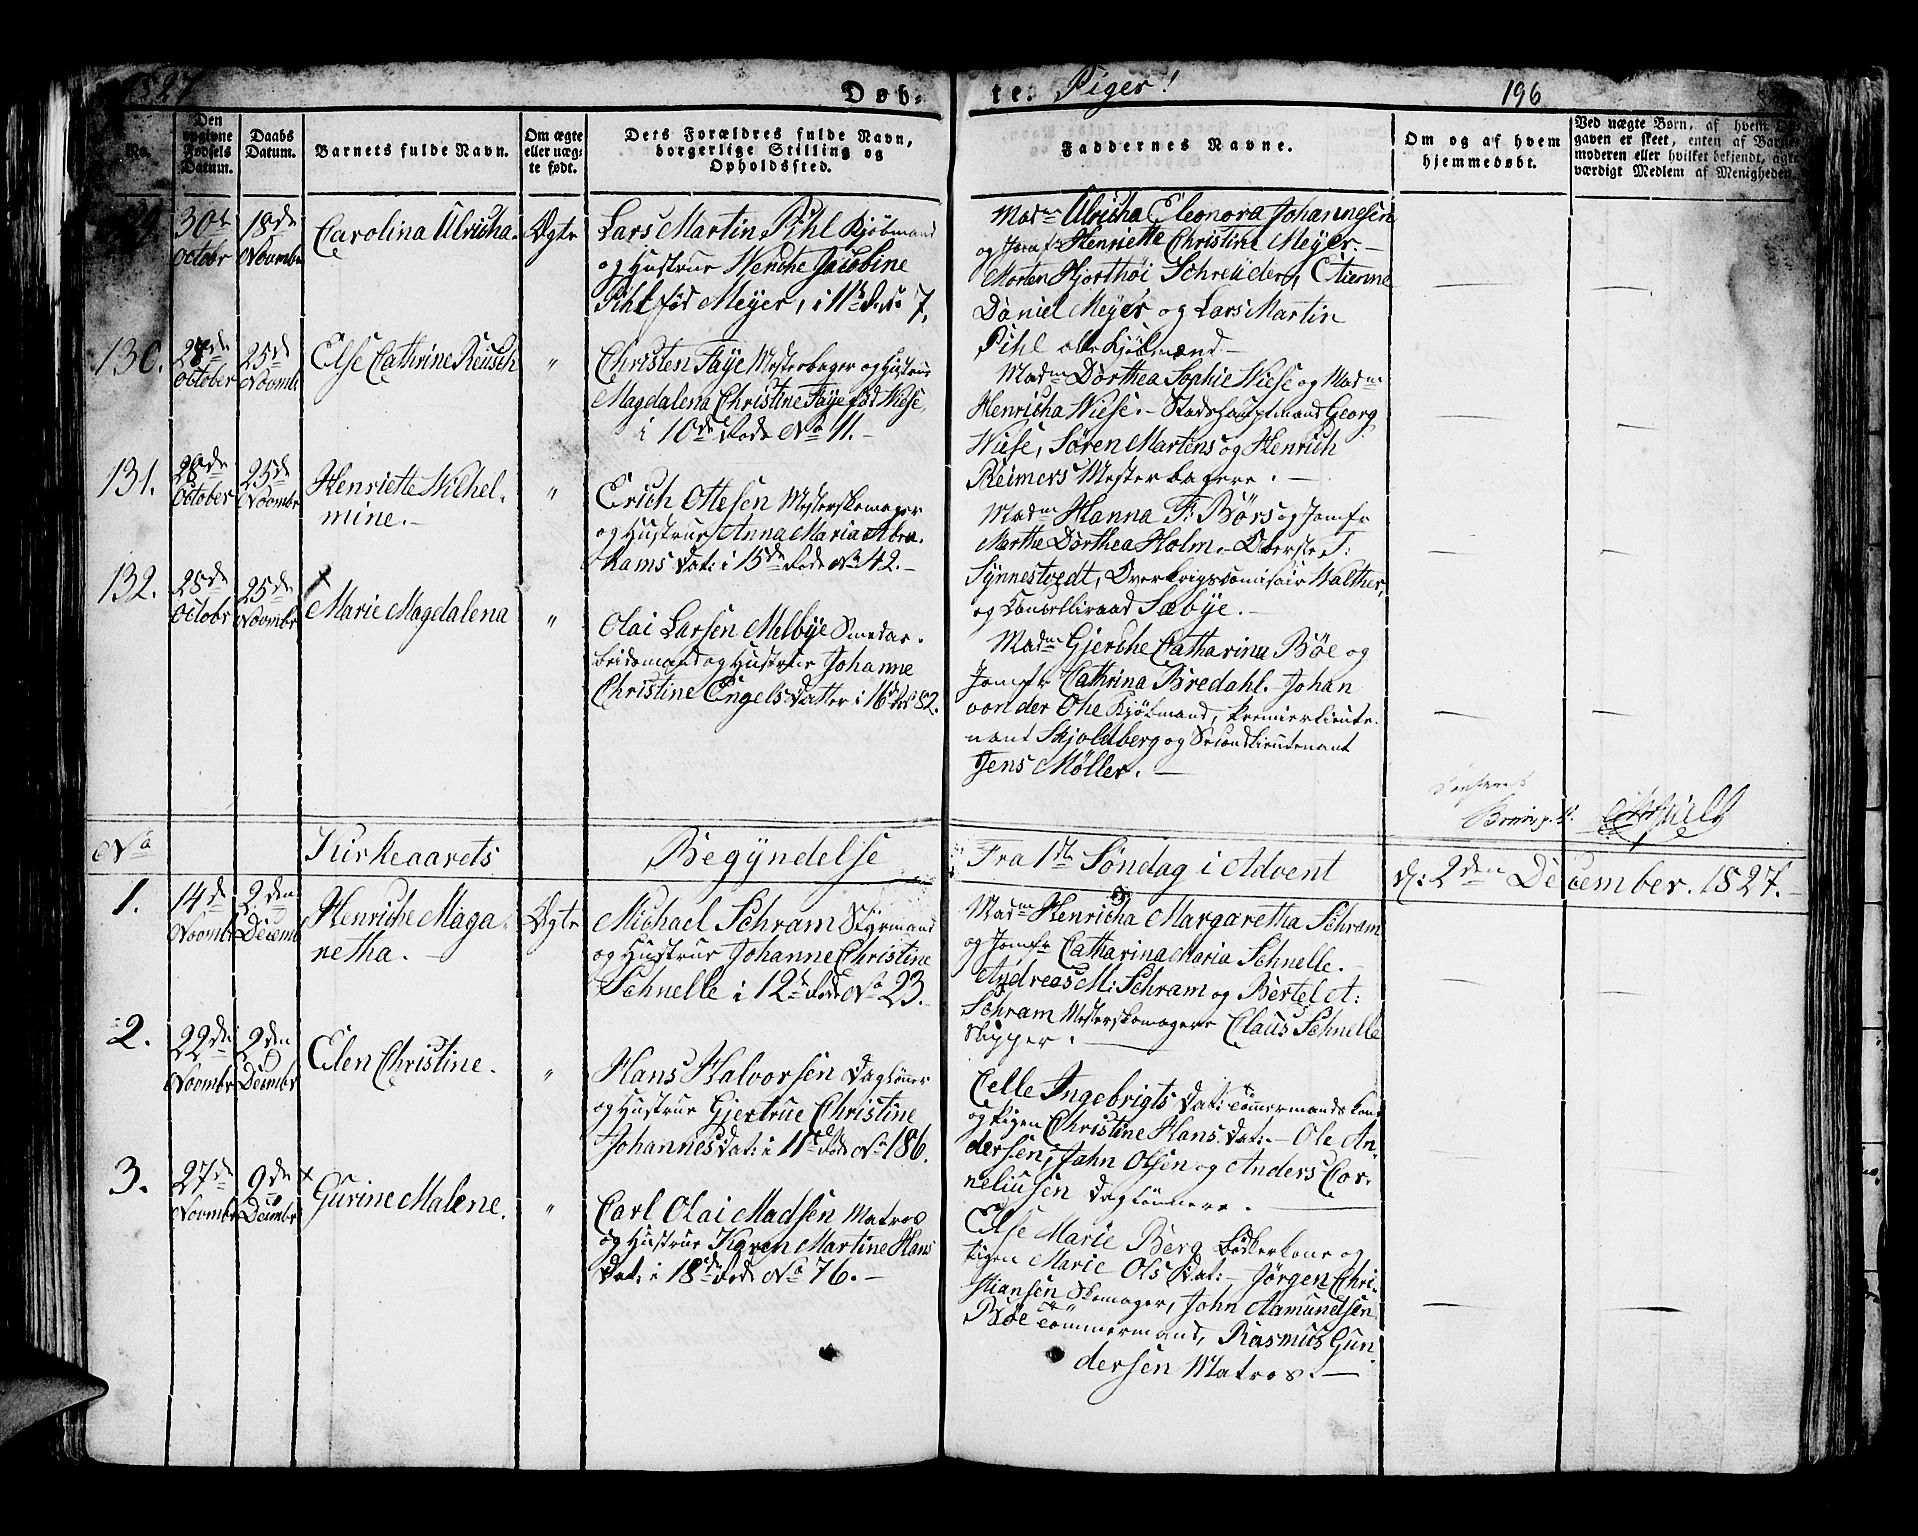 1827
Døb-
te. Piger!
196
No.
Den opgivne Fødsels Datum.
Daabs Datum.
Barnets fulde Navn.
Om ægte eller uægte født.
Dets Forældres fulde Navn, borgerlige Stilling og Opholdssted.
Faddernes Navne.
Om og af hvem hjemmedøbt.
Ved uægte Børn, af hvem Opgaven er skeet, enten af Barnemoderen eller hvilket bekjendt, agtværdigt Medlem af Menigheden.
129.
30te October
18de Novembr
Carolina Ulricha
Ægte
Lars Martin Pihl Kjøbmand
og Hustrue Wenche Jacobine
Pihl fød Meyer, i 11te Rode 7.
Madme Ulricha Eleonora Johannesen
og Jomfr Henriette Christine Meyer.
Morten Hjorthøi Schreüder, Etienne
Daniel Meyer og Lars Martin
Pihl alle Kjøbmænd
130.
October
25de Novembr
Else Cathrine Reusch
"
Christen Faye Mesterbager og Hustrue
Magdalena Christine Faye fød Wiese,
i 10de Rode No 11.
Madme Dorthea Sophie Wiese og Madme
Henricha Wiese. Stadshauptmand Georg
Wiese, Søren Martens og Henrich
Reimers Mesterbagere.
131.
28de October
25de Novembr
Henriette Wilhel-
mine.
"
Erich Ottesen Mesterskomager
og Hustrue Anna Maria Abra-
hams Dat: i 15de Rode No 42.
Madme Hanna F: Børs og Jomfr
Marthe Dorthea Holm. Oberste T:
Synnestvedt, Overkrigscomisair Walther,
og Cancelliraad Sæbye.
132.
28de October
25de Novembr
Marie Magdalena
"
Olai Larsen Melbye Smedar-
beidsmand og Hustrue Johanne
Christine Engels Datter i 16de Rode 82.
Madme Gjerche Catharina Bøe og
Jomfr Cathrina Bredahl. Johan
von der Ohe Kjøbmand, Premierlieute-
nant Skjoldberg og Secondlieutenant
Jens Møller.
No
Kirkeaarets
Begyndelse
Fra 1ste Søndag i Advent
d: 2den December. 1827.
1.
14de Novembr
2den Decemb
Henriche Maga-
retha.
Ægte
Michael Schram Styrmand
og Hustrue Johanne Christine
Schnelle i 12te Rode No 23.
Madme Henricha Margaretha Schram
og Jomfr Catharina Maria Schnelle.
Andreas M: Schram og Bertel A:
Schram Mesterskomagere Claus Schnelle
Skipper.
2.
22de Novembr
9den Decembr
Elen Christine.
"
Hans Halvorsen Dagløner
og Hustrue Gjertrue Christine
Johannes Dat: i 11te Rode No 186.
Celle Ingebrigts Dat: Tømmermands Kone
og Pigen Christine Hans Dat: Ole An-
dersen, John Olsen og Anders Cor-
neliusen Daglønnere.
3.
27de Novembr
9de Decembr
Gurine Malene.
"
Carl Olai Madsen Matros
og Hustrue Karen Martine Hans
Dat: i 18de Rode No 76.
Else Marie Berg Bødkerkone og
Pigen Marie Ols Dat: Jørgen Chri-
stiansen Skomager, John Aamundsen
Bøe Tømmermand, Rasmus Gun-
dersen Matros.